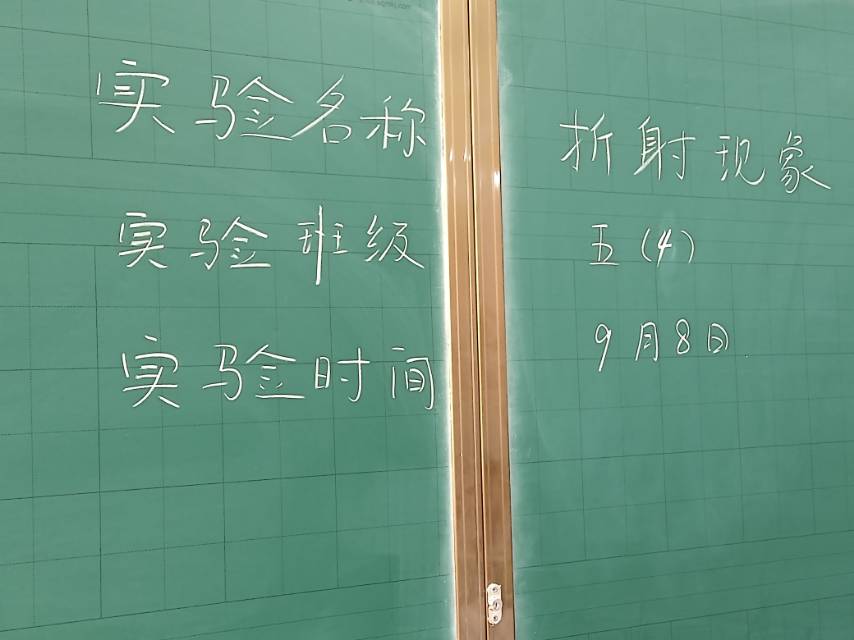 实验名称 折射现象
实验班级 五(4)
实验时间 9月8日